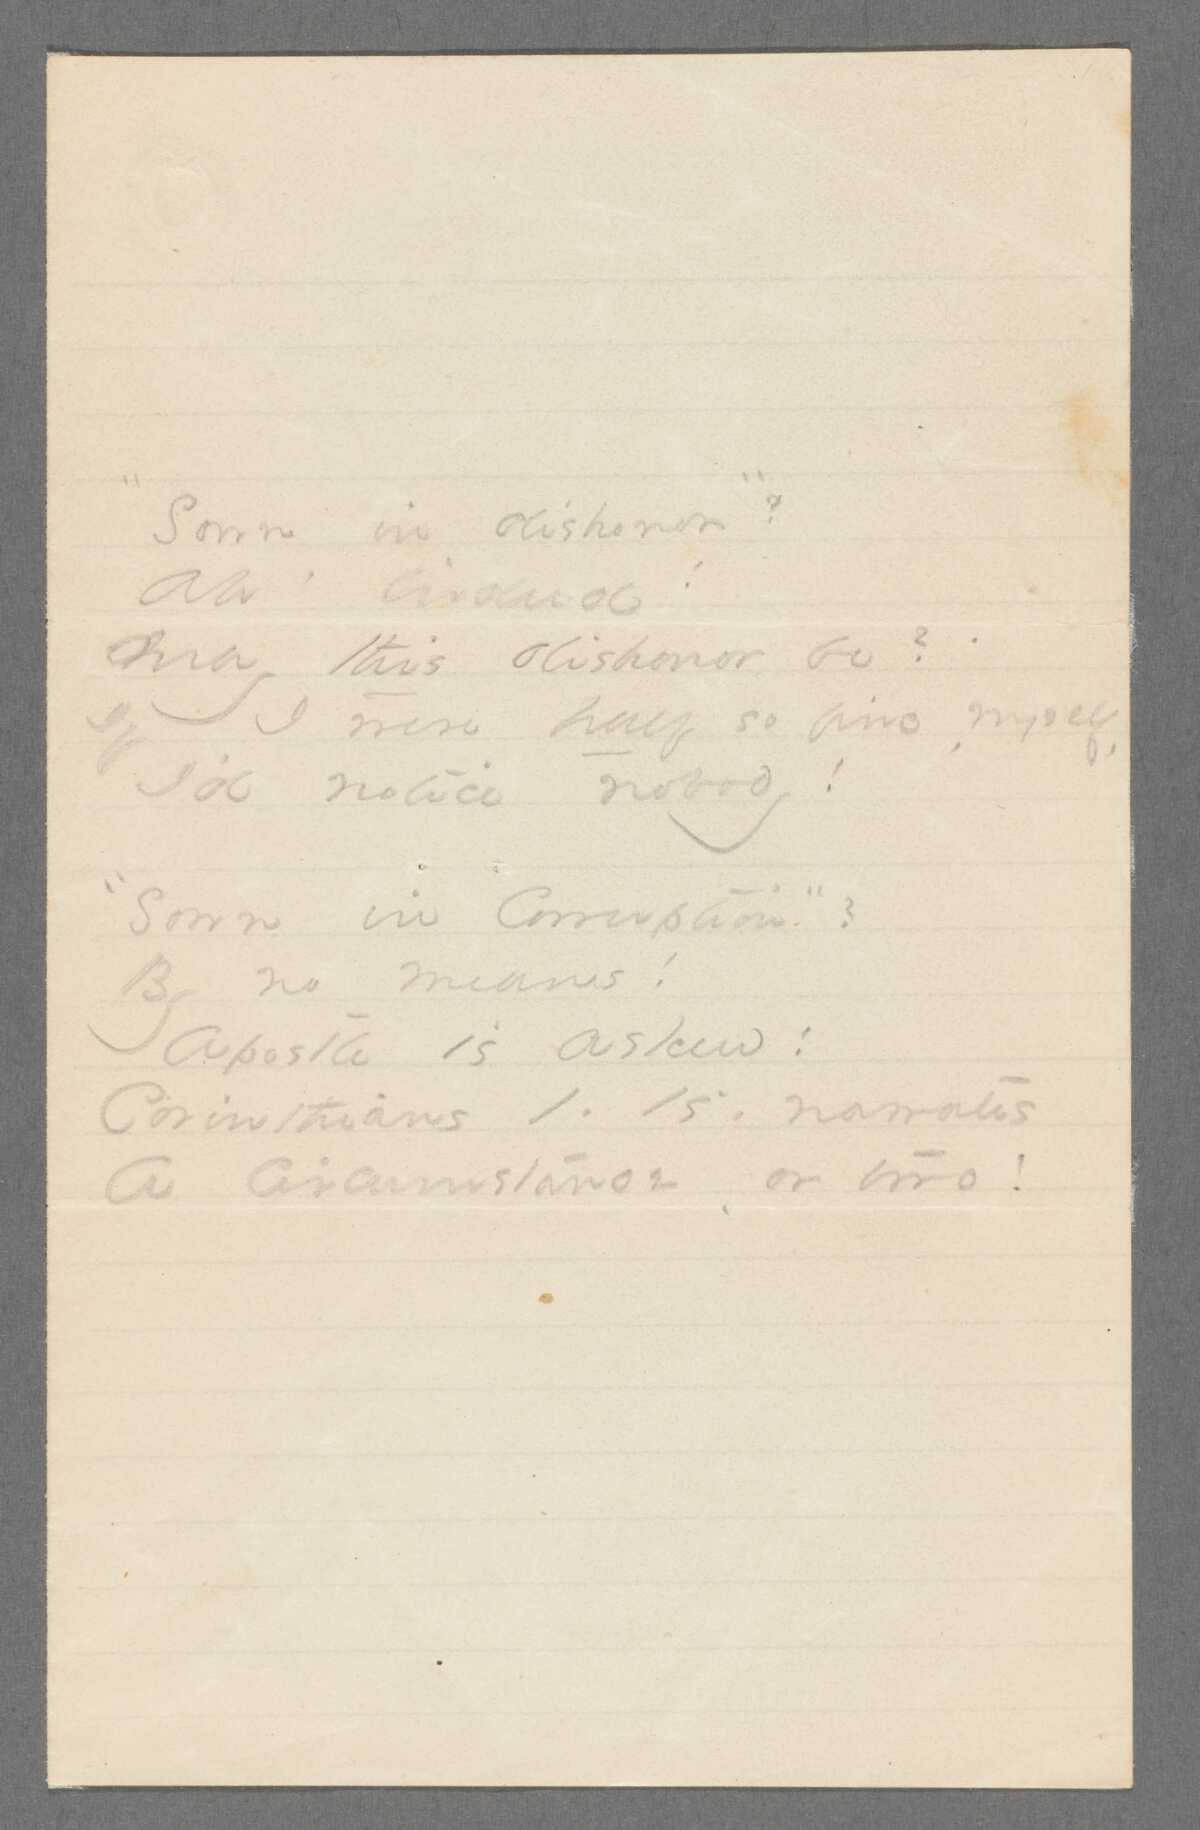 "Sown in dishonor"?
Ah! Indeed!
May this dishonor be?
If I were half so fine, myself,
I'd notice nobody!
"Sown in Corruption"?
By no means!
Apostle is askew!
Corinthians 1. 15. narrates
A circumstance, or two!